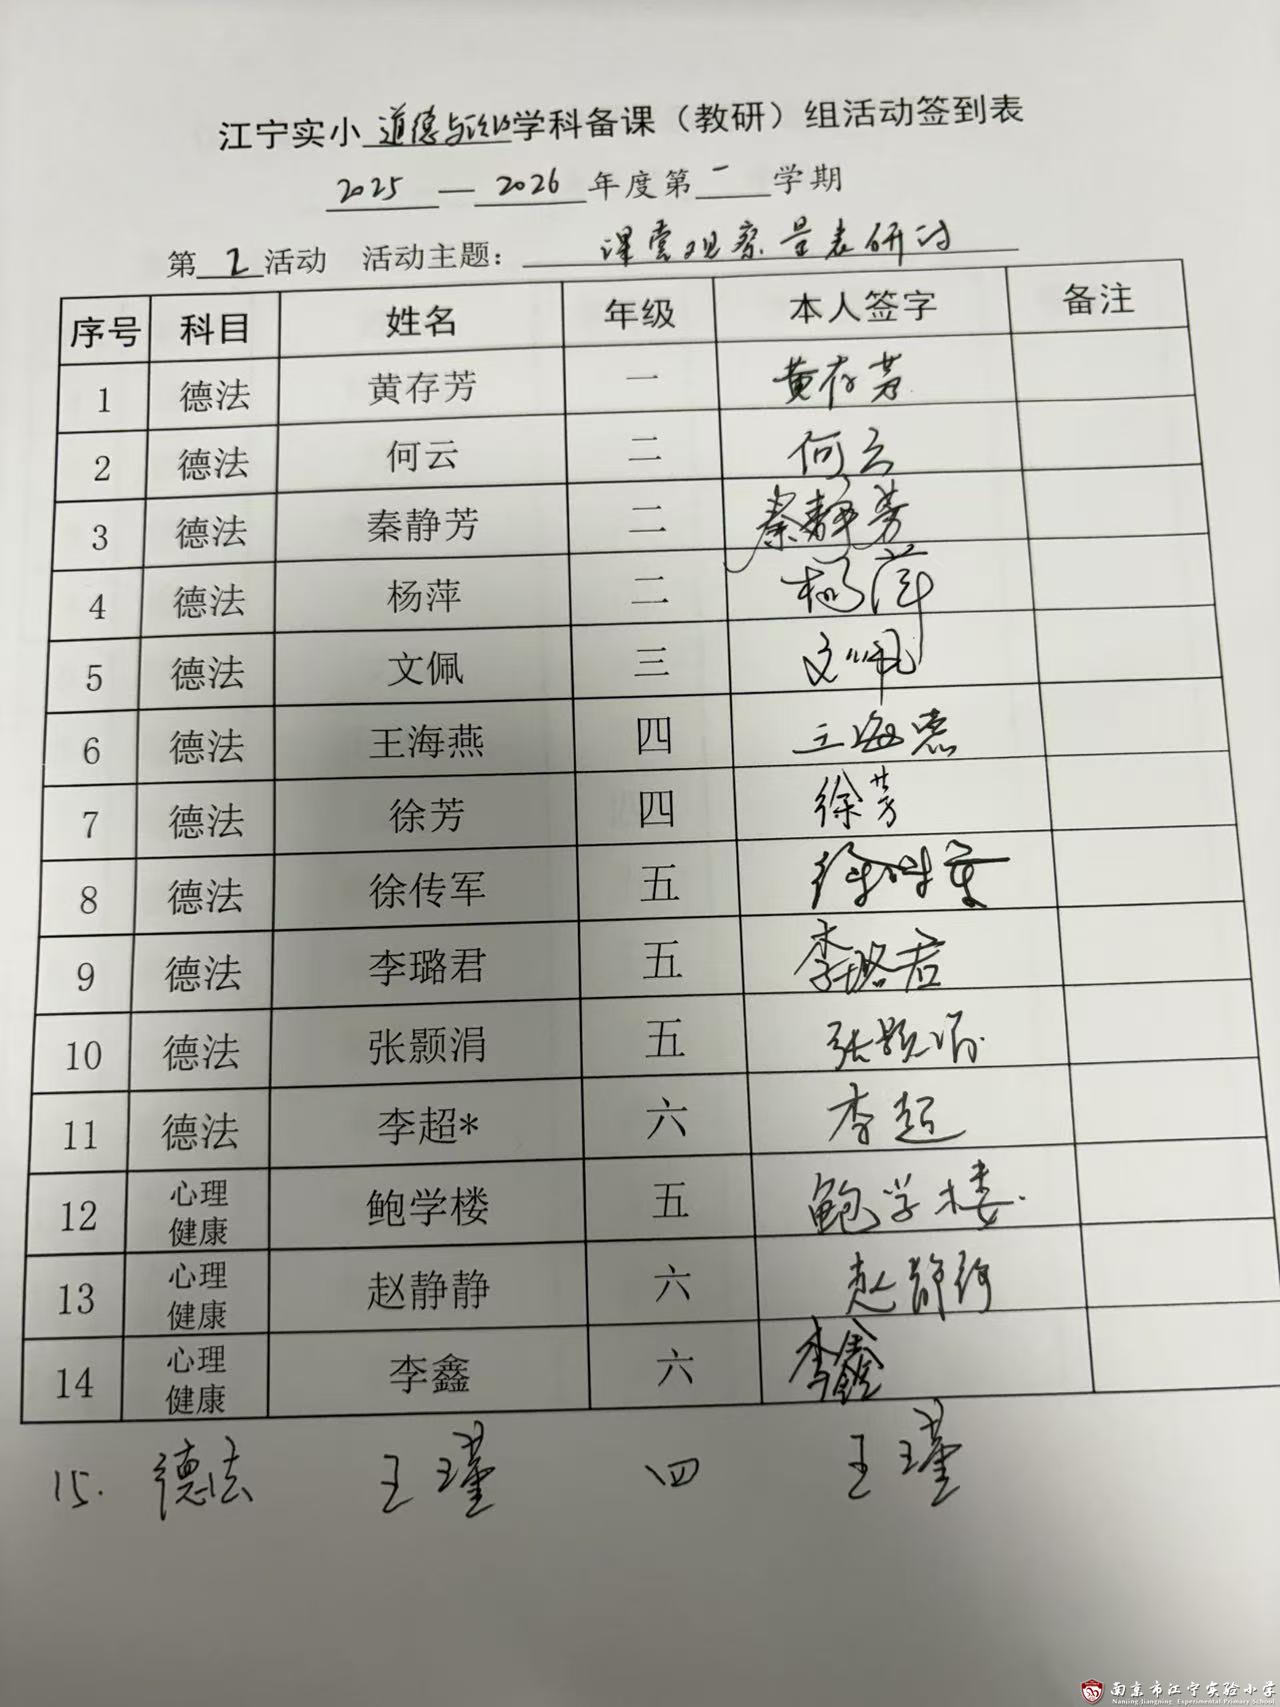 江宁实小道德与法治学科备课（教研）组活动签到表
2025—2026年度第一学期
第2活动 活动主题：课堂观察量表研讨
序号 科目 姓名 年级 本人签字 备注
1 德法 黄存芳 一 黄存芳
2 德法 何云 二 何云
3 德法 秦静芳 二 秦静芳
4 德法 杨萍 二 杨萍
5 德法 文佩 三 文佩
6 德法 王海燕 四 王海燕
7 德法 徐芳 四 徐芳
8 德法 徐传军 五 徐传军
9 德法 李璐君 五 李璐君
10 德法 张颢涓 五 张颢涓
11 德法 李超* 六 李超
12 心理健康 鲍学楼 五 鲍学楼
13 心理健康 赵静静 六 赵静静
14 心理健康 李鑫 六 李鑫
15. 德法 王瑾 四 王瑾
南京市江宁实验小学
Nanjing Jiangning Experimental Primary School